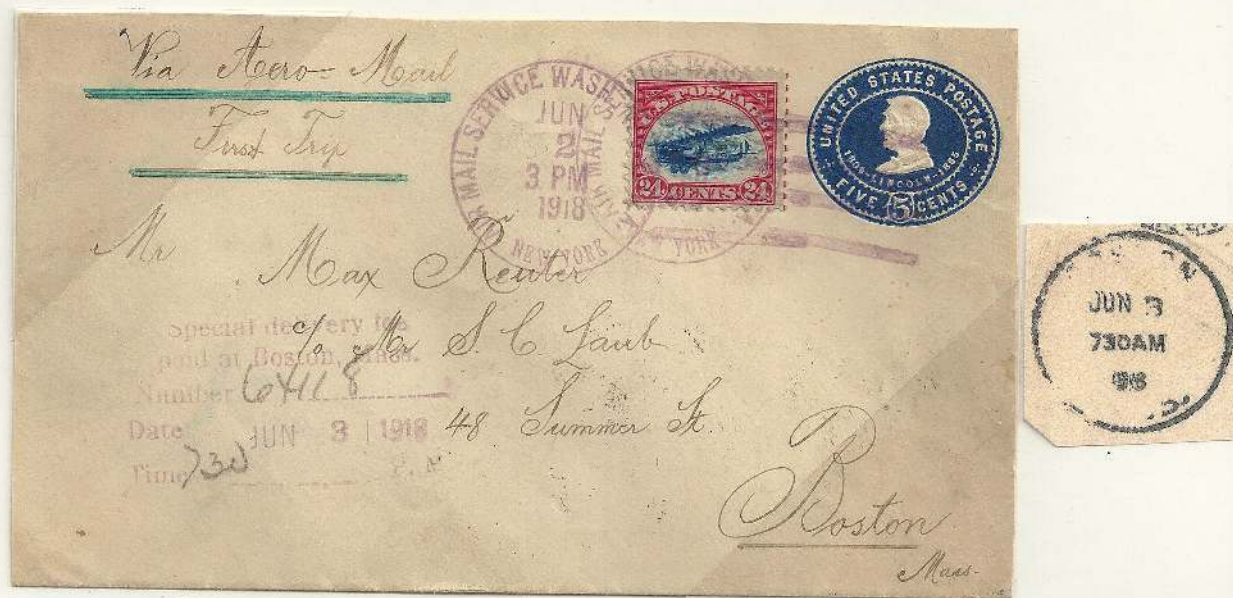 Via Aero-Mail
First Trip
AIR MAIL SERVICE WASH
NEW YORK
JUN
2
3 PM
1918
U.S. POSTAGE
24 CENTS 24
UNITED STATES POSTAGE
1809-LINCOLN-1865
FIVE 5 CENTS
Mr
Max Reuter
c/o Mr S. C. Laub
48 Summer St.
Boston
Mass.
Special delivery fee
paid at Boston, Mass.
Number 64118
Date JUN 3 1918
Time 730
JUN 3
730AM
1918